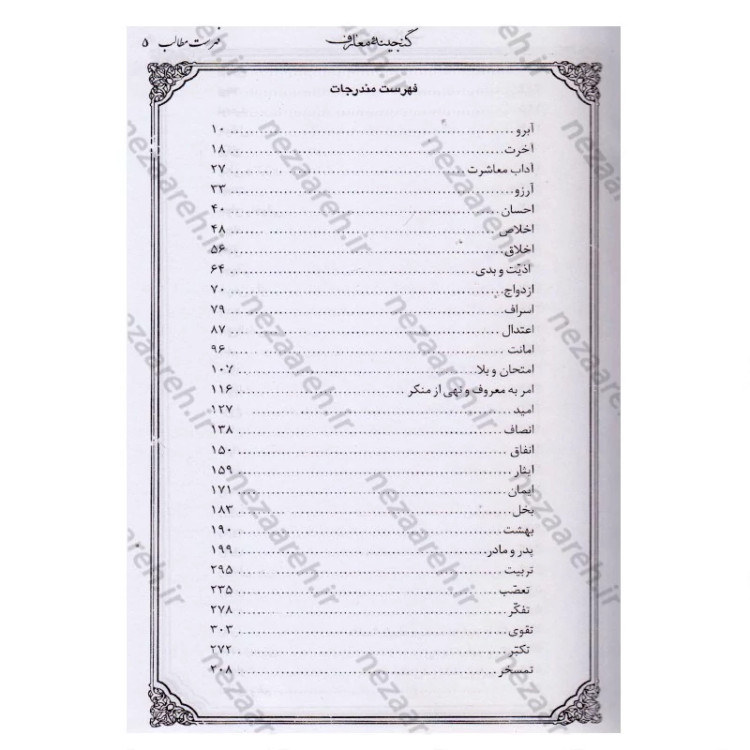 گنجینه معارف
فهرست مطالب ۵
فهرست مندرجات
آبرو ۱۰
آخرت ۱۸
آداب معاشرت ۲۷
آرزو ۳۳
احسان ۴۰
اخلاص ۴۸
اخلاق ۵۶
اذیّت و بدی ۶۴
ازدواج ۷۰
اسراف ۷۹
اعتدال ۸۷
امانت ۹۶
امتحان و بلا ۱۰۷
امر به معروف و نهی از منکر ۱۱۶
امید ۱۲۷
انصاف ۱۳۸
انفاق ۱۵۰
ایثار ۱۵۹
ایمان ۱۷۱
بخل ۱۸۳
بهشت ۱۹۰
پدر و مادر ۱۹۹
تربیت ۲۹۵
تعصّب ۲۳۵
تفکّر ۲۷۸
تقوی ۳۰۳
تکبّر ۲۷۲
تمسخر ۲۰۸
nezaareh.ir